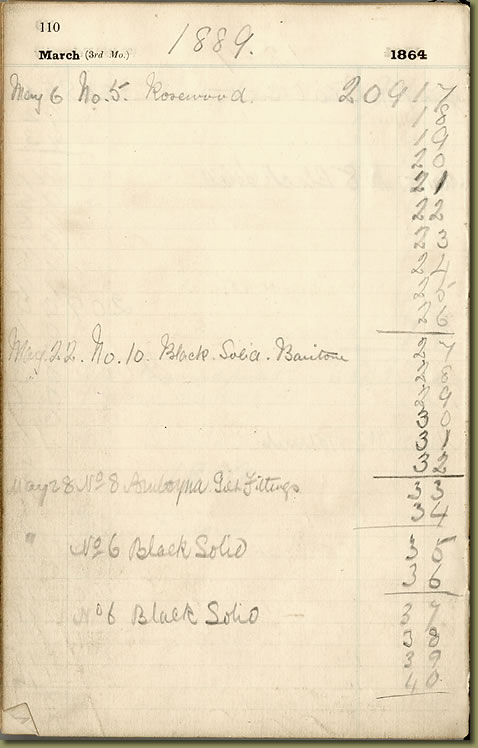 110
1889.
March (3rd Mo.) 1864
May 6 No. 5. Rosewood. 20917
18
19
20
21
22
23
24
25
26
May 22. No. 10. Black Solid. Baritone 27
28
29
30
31
32
May 28 No 8 Amboyna Gilt Fittings 33
34
" No 6 Black Solid 35
36
No 6 Black Solid 37
38
39
40